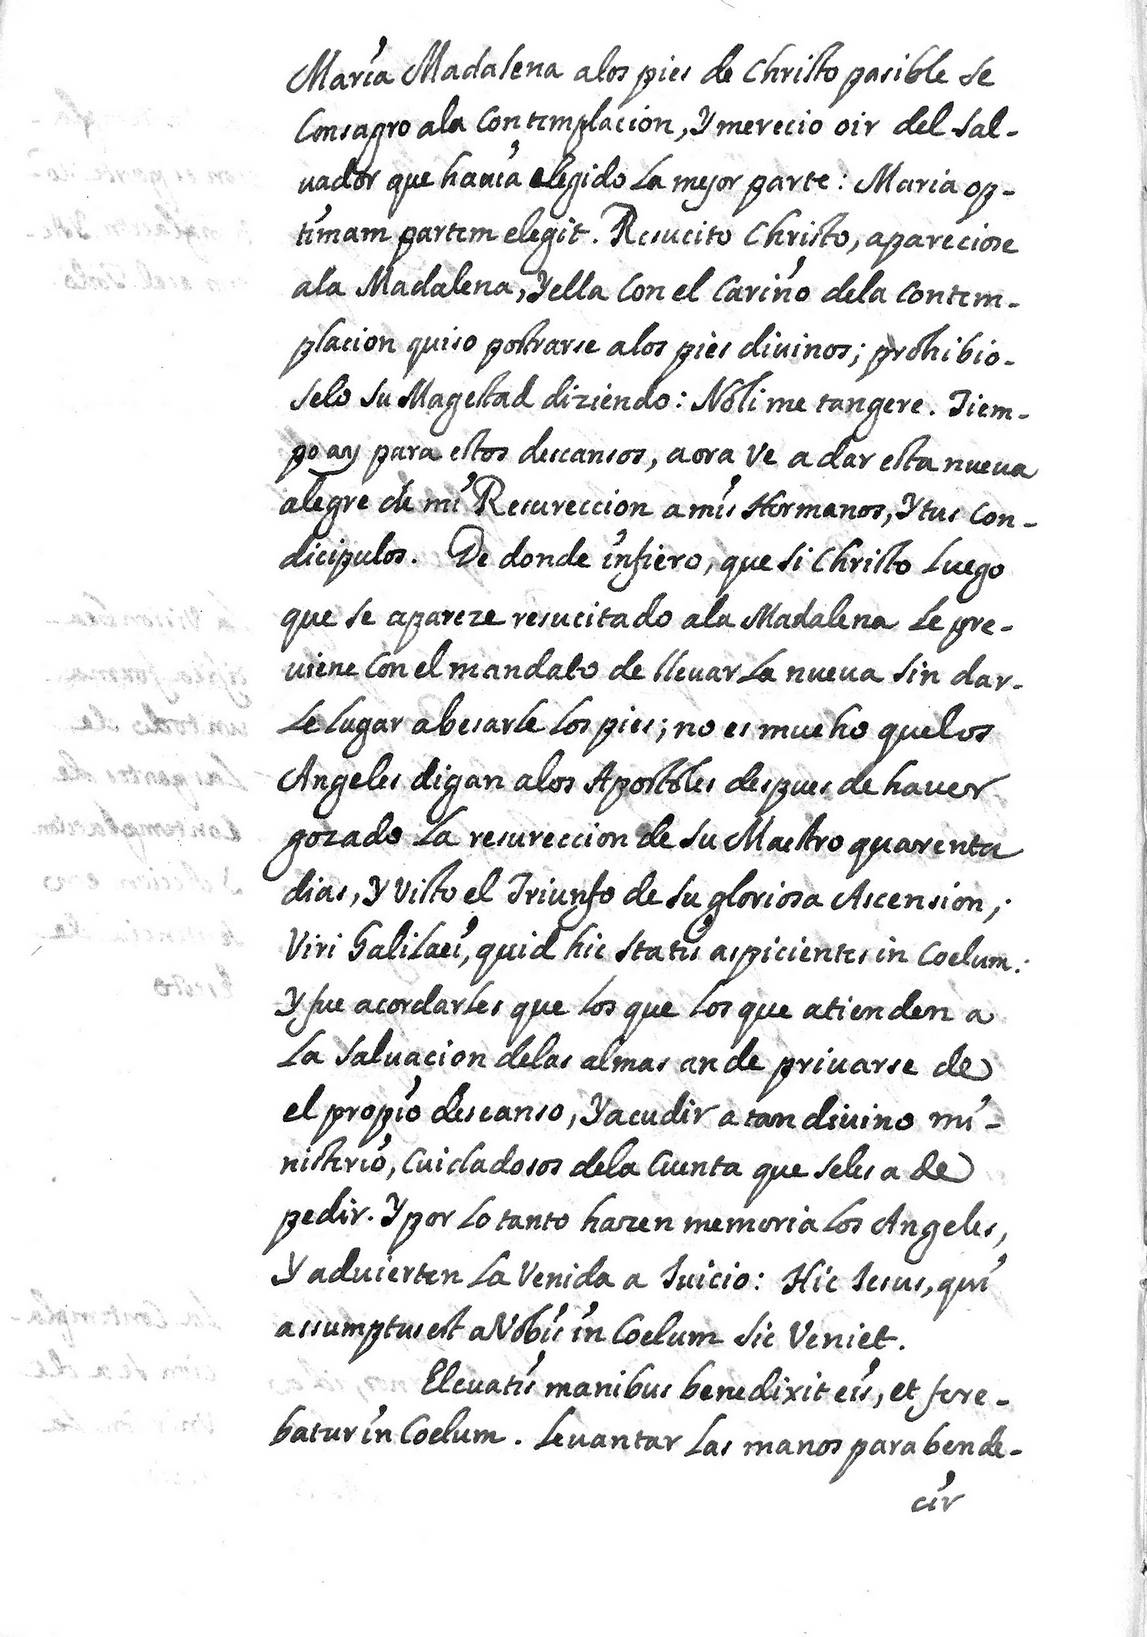 Maria Madalena alos pies de Christo pasible se
Consagro ala Contemplacion, Y merecio oir del Sal-
uador que hauia elegido La mejor parte: Maria op-
timam partem elegit. Resucito Christo, apareciose
ala Madalena, Yella Con el Cariño dela Contem-
placion quiso postrarse alos pies diuinos; prohibio-
selo Su Magestad diziendo: Noli me tangere. Tiem-
po ay para estos descansos, aora Ve a dar esta nueua
alegre de mi Resureccion a mis Hermanos, Y tus Con-
dicipulos. De donde infiero, que Si Christo Luego
que se apareze resucitado ala Madalena Le pre-
uiene Con el mandato de lleuar La nueua Sin dar-
Le Lugar abesarle Los pies; no es mucho quelos
Angeles digan alos Apostoles despues de hauer
gozado La resureccion de Su Maestro quarenta
dias, Y Visto el Triunfo de Su gloriosa Ascension;
Viri Galilaei, quid hic statis aspicientes in Coelum:
Y fue acordarles que Los que Los que atienden a
La Saluacion delas almas an de priuarse de
el propio descanso, Y acudir a tan diuino mi-
nisterio, Cuidadosos dela Cuenta que seles a de
pedir. Y por Lo tanto hazen memoria Los Angeles,
Y aduierten La Venida a Juicio: Hic Jesus, qui
assumptus est a Nobis in Coelum Sic Veniet.
Eleuatis manibus benedixit eis, et fere-
batur in Coelum. Leuantar Las manos para bende-
cir